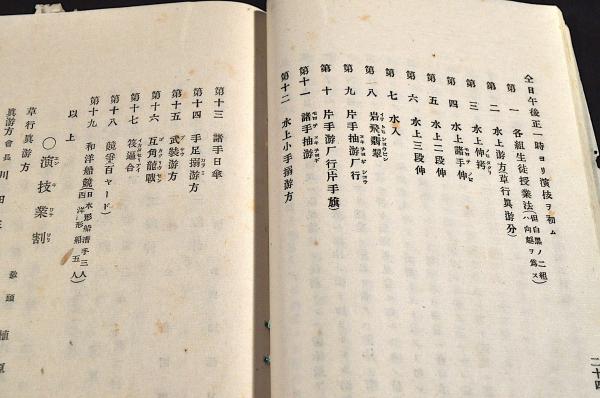 仝日午後正一時ヨリ演技ヲ初ム
第一 各組生徒授業法(但白黒ノ二組ハ向越ヲ為ス)
第二 水上游方(草行眞游分)
第三 水上伸拷
第四 水上諸手伸
第五 水上二段伸
第六 水上三段伸
第七 水入
第八 岩飛翡翠
第九 片手抽游厂行
第十 片手游厂行(片手旗)
第十一 諸手抽游
第十二 水上小手搦游方
第十三 諸手日傘
第十四 手足搦游方
第十五 武裝游方
第十六 互角龍戰
第十七 筏逼合
第十八 競爭(百ヤード)
第十九 和洋船競(日本形船漕手三人 西洋形船五人)
以上
〇演技業割
草行眞游方
眞游方會長 川田
二十四